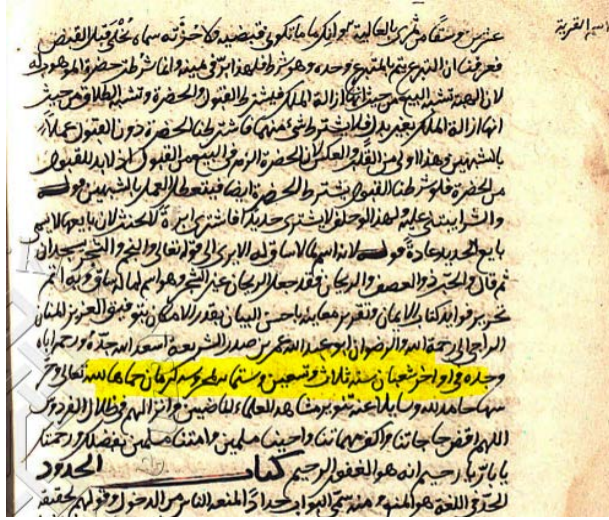 اسم القرية
عشرين وسقا من ثمرى بالعالية وانك ما تكونى قبضتيه ولا حزته سماه نحلى قبل القبض
فعرفنا ان التبرع يتم بالمتبرع وحده وهو شرط فلهذا بر فى يمينه وانما شرط حضرة الموهوب له
لان الهبة تشبه البيع من حيث انها ازالة الملك فيشترط القبول والحضرة وتشبه الطلاق من حيث
انها ازالة الملك بغير بدل فلا يشترط شئ منهما فاشترطنا الحضرة دون القبول عملا
بالشبهين وهذا اولى من القلب والعكس لان الحضرة الزم فى البيع من القبول اذ لا بد للقبول
من الحضرة فلو شرطنا القبول يشترط الحضرة ايضا فيتعطل العمل بالشبهين قوله
والشرا يبتنى عليه ولهذا لو حلف لا يشترى حديدا فاشترى ابرة لا يحنث لان بايعها لا يسمى
بايع الحديد عادة قوله لانه اسم لما لا ساق له الا يرى الى قوله تعالى والنجم والشجر يسجدان
ثم قال والحب ذو العصف والريحان فقد جعل الريحان غير الشجر وهو اسم لما له ساق وقد تم
تحرير فوائد كتاب الايمان وتقرير معاينه باحسن البيان بقدر الامكان بتوفيق العزيز المنان
الراجى الى رحمة الله والرضوان ابو عبد الله عمر بن صدر الشريعة اسعد الله جده ورحم اباه
وجده فى اواخر شعبان سنة ثلاث وتسعين وستماية بمحروسة كرمان حماها لله تعالى وحر
سها حامدا لله وسايلا عنه تنوير مشاهد للعلماء الماضين وانزالهم فى ظلال الفردوس
اللهم اقض حاجاتنا واكف مهماتنا واحينا مسلمين وامتنا مسلمين بفضلك ورحمتك
يا بار يا رحيم انه هو الغفور الرحيم كتاب الحدود
الحد فى اللغة هو المنع ومنه سمى البواب حدادا لمنعه الناس من الدخول وقولهم لحقيقة